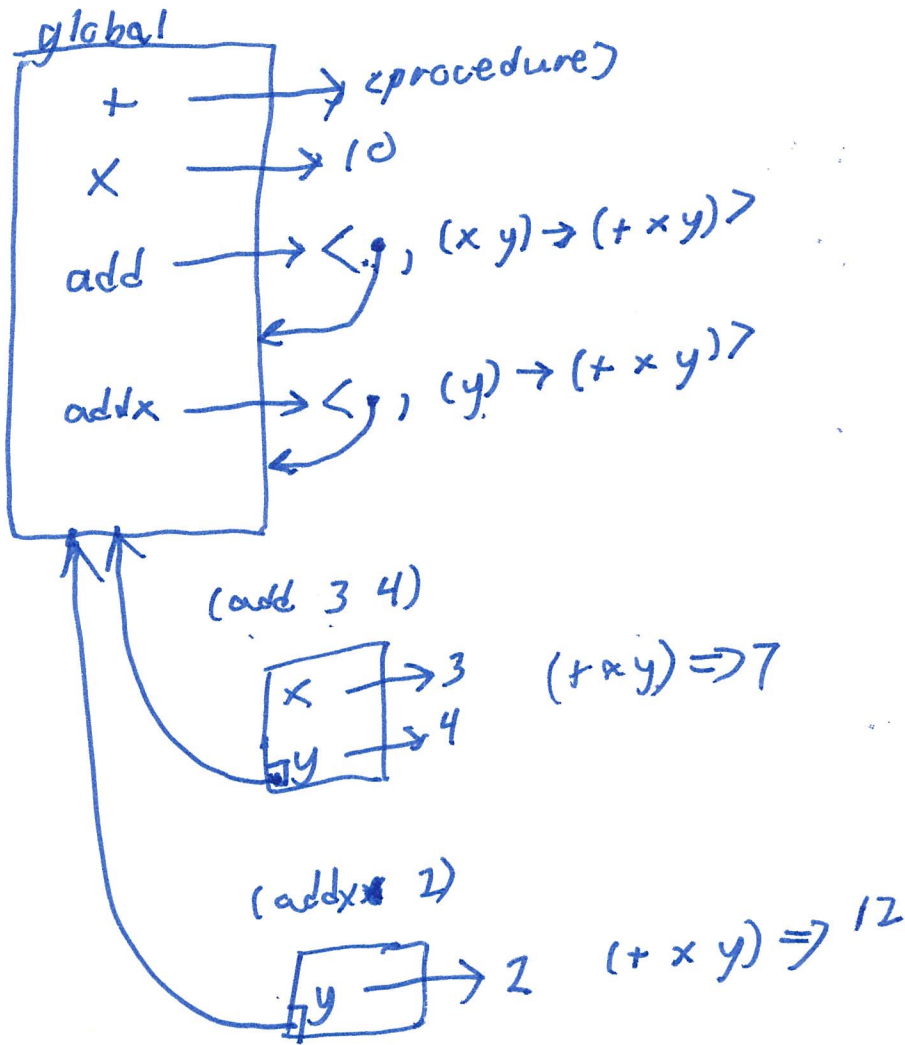 global
+ → <procedure>
x → 10
add → < , (x y) → (+ x y)>
addx → < , (y) → (+ x y)>
(add 3 4)
x → 3 (+ x y) => 7
y → 4
(addx 2)
y → 2 (+ x y) => 12